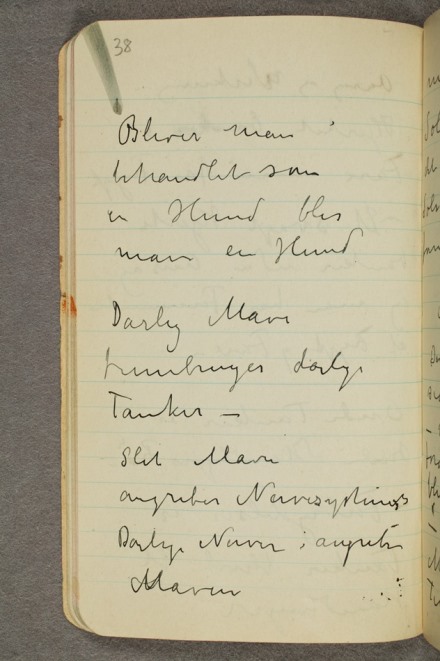 38
Bliver man
behandlet som
en Hund blir
man en Hund
Darlig Mave
frembringer darlige
Tanker —
Slet Mave
angriber Nervesystemet
Darlige Nerver : angriber
Maven